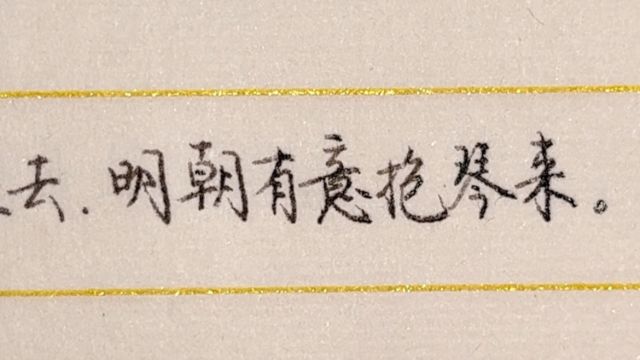 去,明朝有意抱琴来。